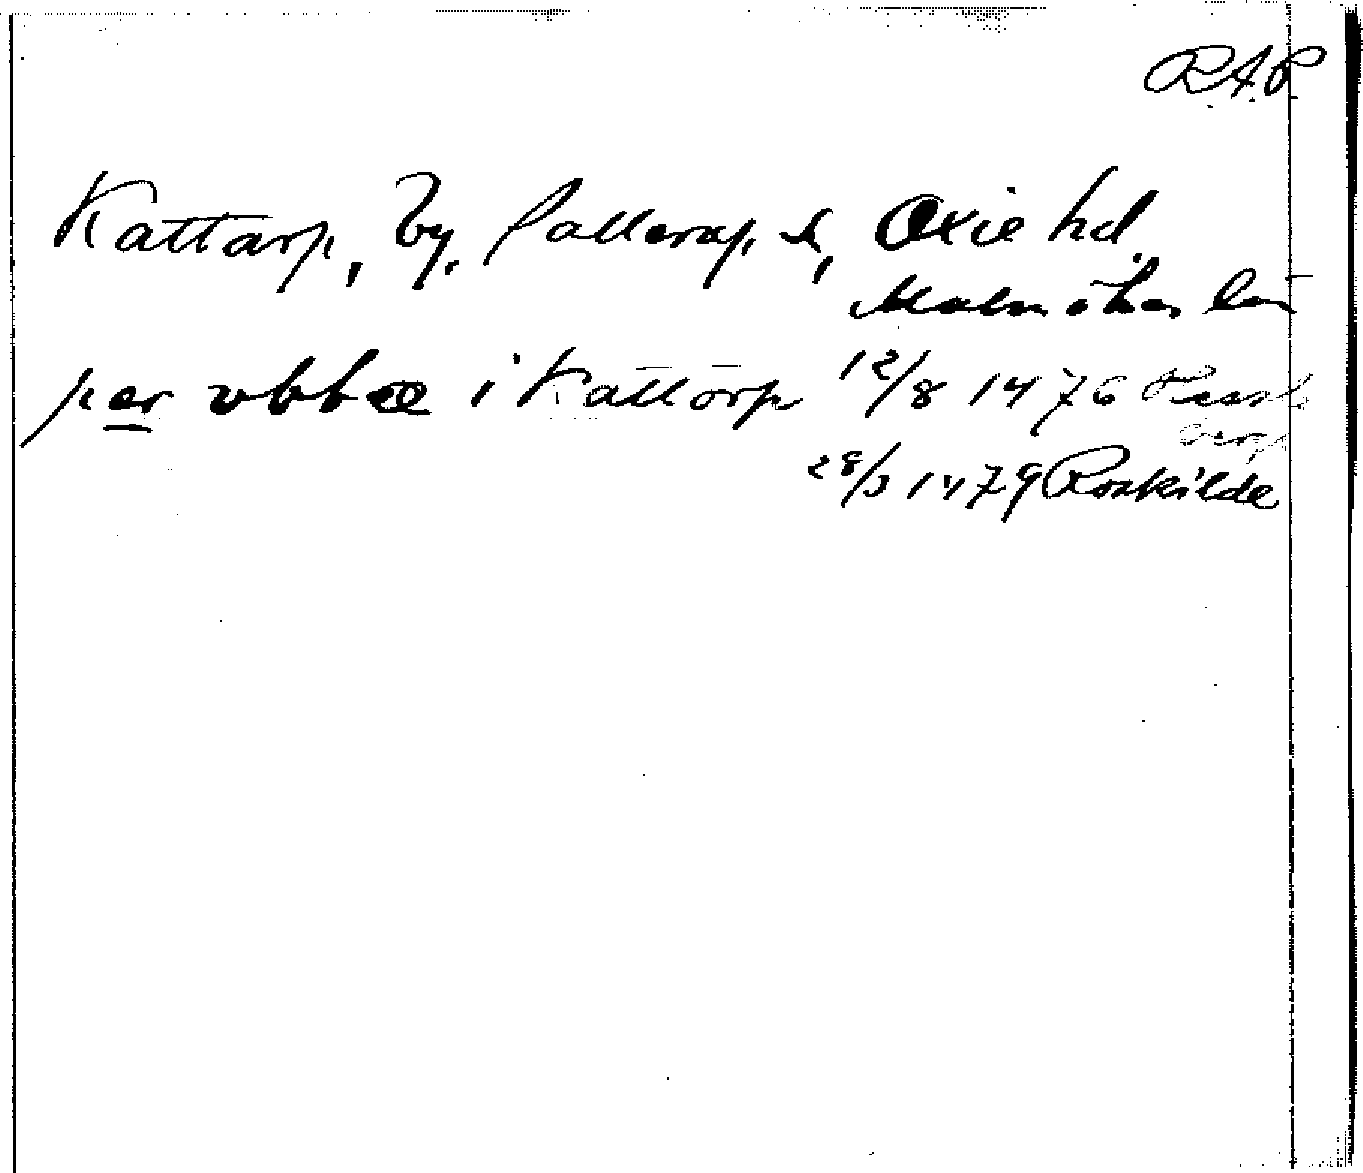 R.A.P
Kattarp, by, s, Oxie hd,
Malmöhus län
per vbbæ i kattorp 12/8 1476
28/3 1479 Roskilde